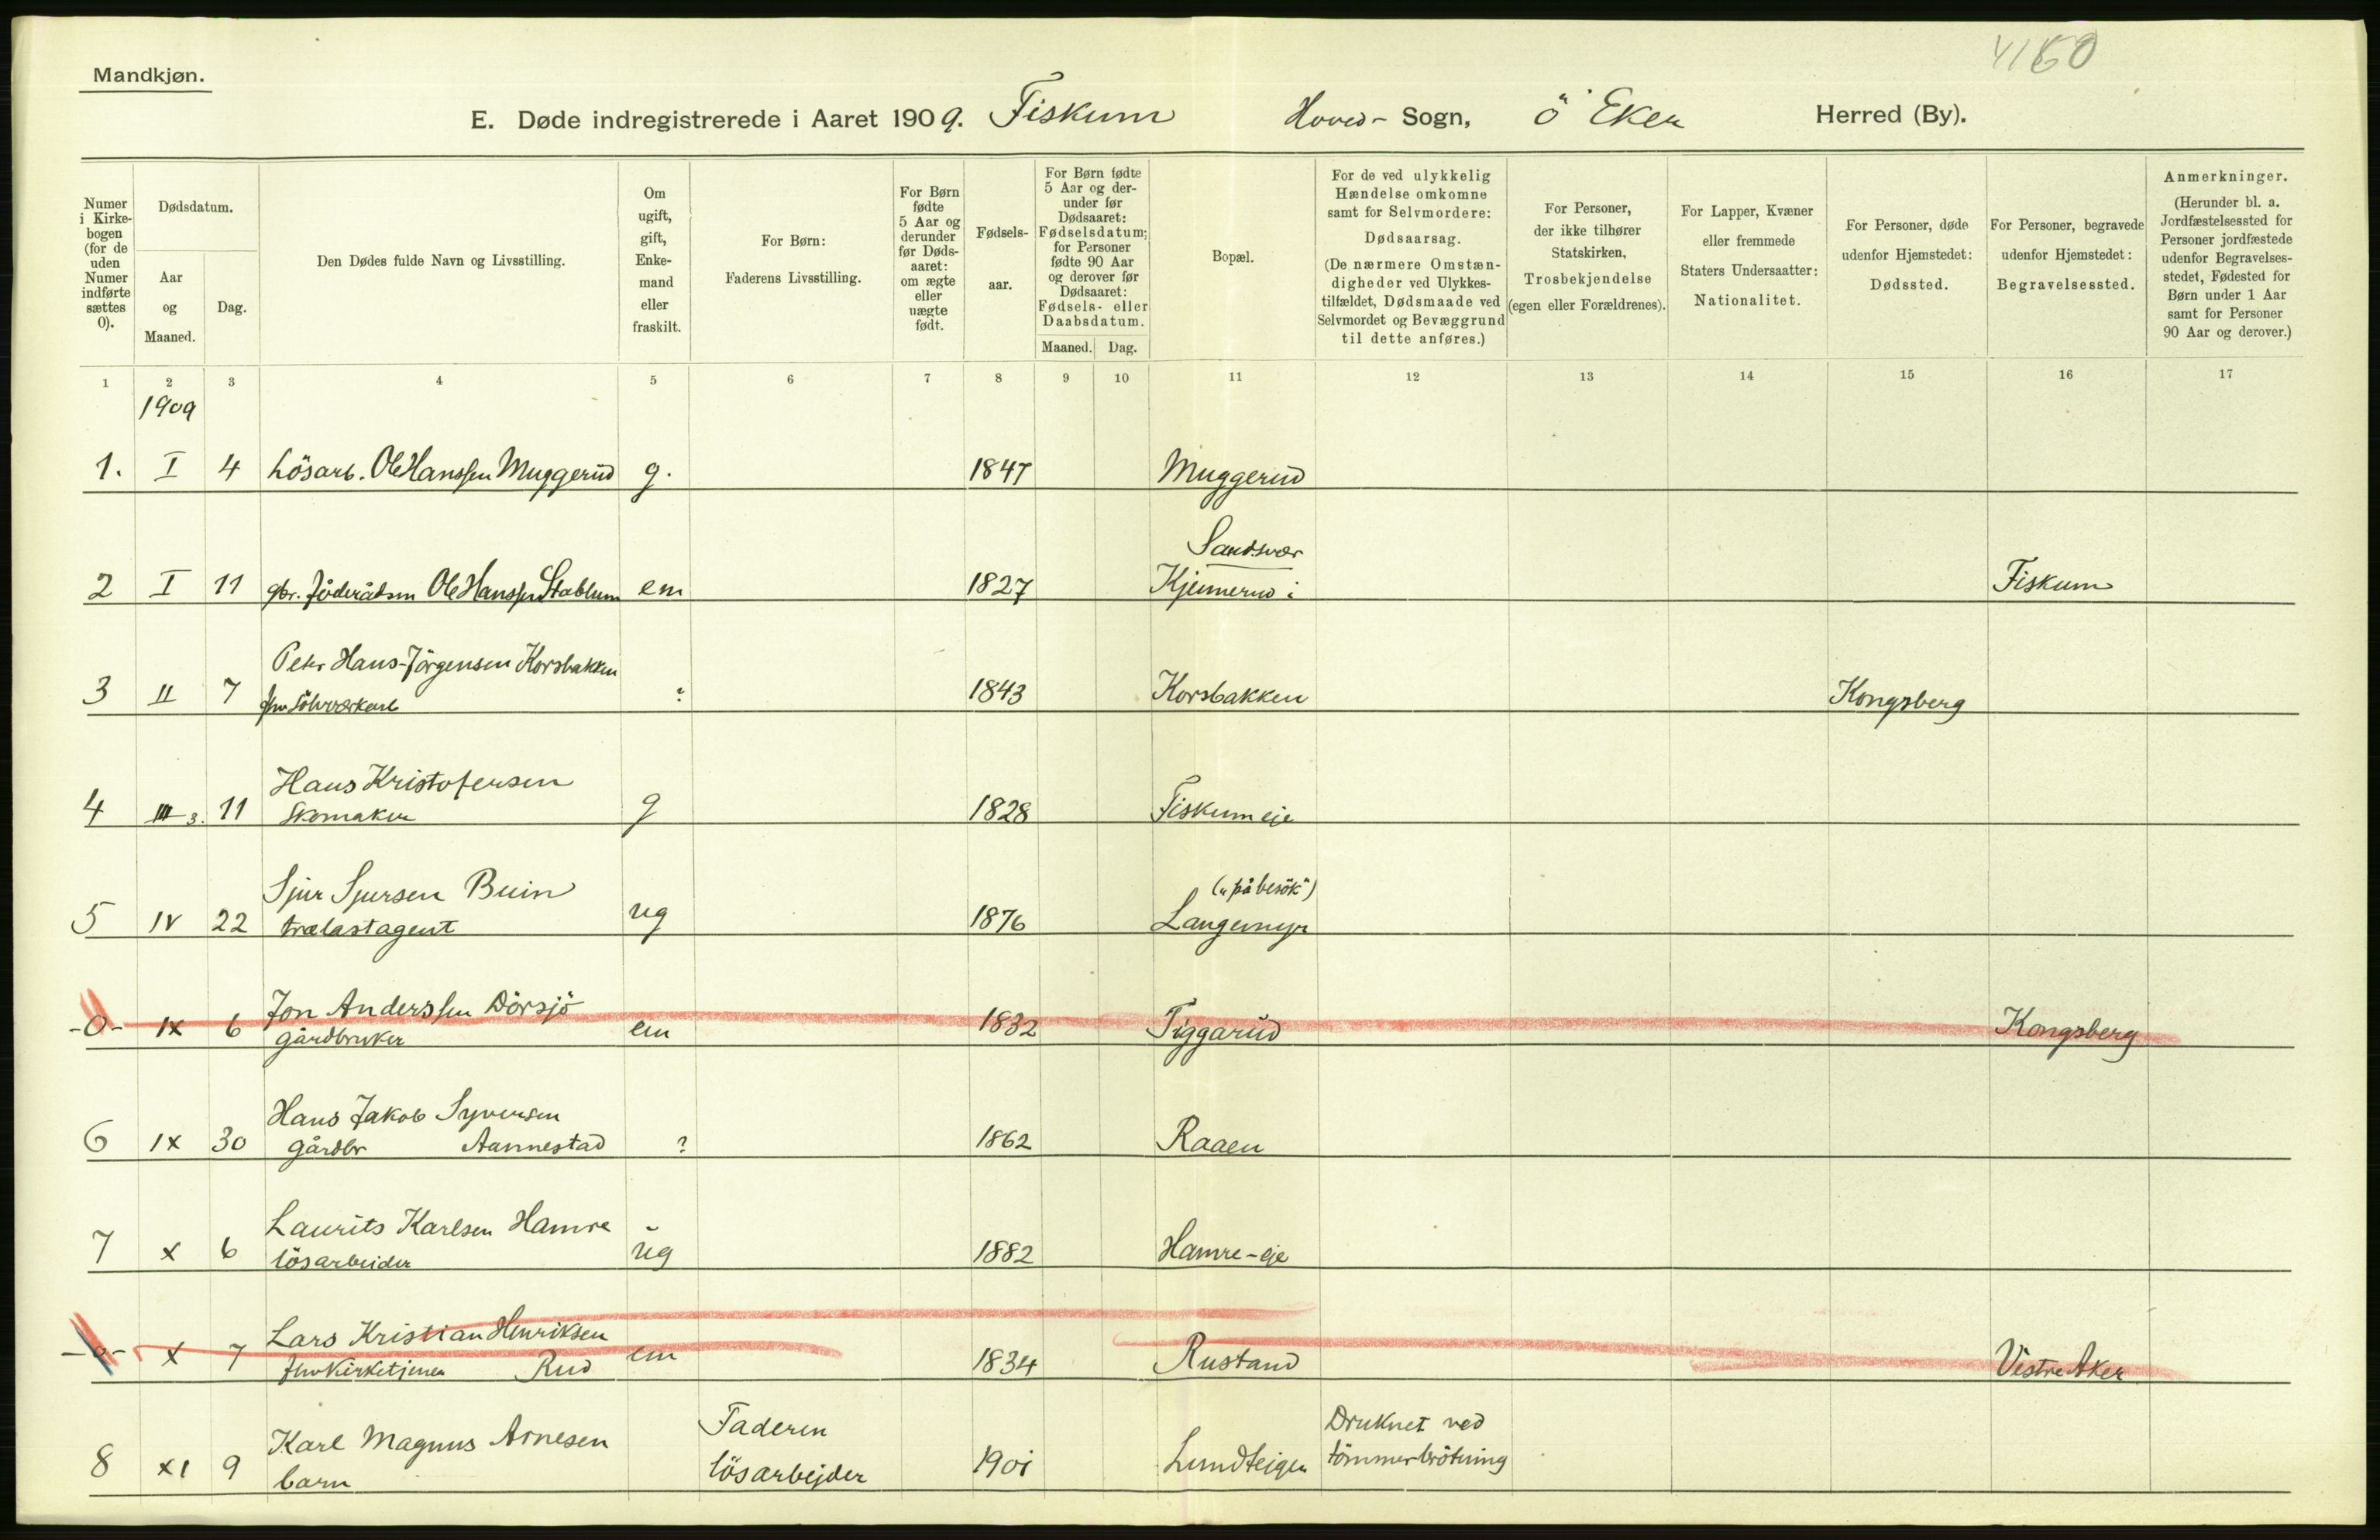 4160
Mandkjøn.
E. Døde indregistrerede i Aaret 1909. Fiskum Hoved- Sogn, Ö Eker Herred (By).
Numer i Kirkebogen (for de uden Numer indførte sættes 0).
Dødsdatum.
Aar og Maaned.
Dag.
Den Dødes fulde Navn og Livsstilling.
Om ugift, gift, Enkemand eller fraskilt.
For Børn: Faderens Livsstilling.
For Børn fødte 5 Aar og derunder før Dødsaaret: om ægte eller uægte født.
Fødselsaar.
For Børn fødte 5 Aar og derunder før Dødsaaret: Fødselsdatum; for Personer fødte 90 Aar og derover før Dødsaaret: Fødsels- eller Daabsdatum.
Maaned. Dag.
Bopæl.
For de ved ulykkelig Hændelse omkomne samt for Selvmordere: Dødsaarsag. (De nærmere Omstændigheder ved Ulykkestilfældet, Dødsmaade ved Selvmordet og Bevæggrund til dette anføres.)
For Personer, der ikke tilhører Statskirken, Trosbekjendelse (egen eller Forældrenes).
For Lapper, Kvæner eller fremmede Staters Undersaatter: Nationalitet.
For Personer, døde udenfor Hjemstedet: Dødssted.
For Personer, begravede udenfor Hjemstedet: Begravelsessted.
Anmerkninger. (Herunder bl. a. Jordfæstelsessted for Personer jordfæstede udenfor Begravelsesstedet, Fødested for Børn under 1 Aar samt for Personer 90 Aar og derover.)
1 2 3 4 5 6 7 8 9 10 11 12 13 14 15 16 17
1909
1. I 4 Lösarb. Ole Hanssen Muggerud g. 1847 Muggerud
Sandsvær
2 I 11 gbr. föderådsm Ole Hanssen Stablum em 1827 Kjennerud i Fiskum
Peter Hans-Jörgensen Korsbakken
3 II 7 fhv Sölvværkarb ? 1843 Korsbakken Kongsberg
Hans Kristofersen
4 III 3. 11 Skomaker g 1828 Fiskum eje
Sjur Sjursen Buin ("på besök")
5 IV 22 trælastagent ug 1876 Langemyr
Jon Anderssen Dörsjö
-0- IX 6 gårdbruker em 1832 Tiggarud Kongsberg
Hans Jakob Syversen
6 IX 30 gårdbr Aannestad ? 1862 Raaen
Laurits Karlsen Hamre
7 X 6 lösarbeider ug 1882 Hamre-eje
Lars Kristian Henriksen
-0- X 7 fhv Kirketjener Rud em 1834 Rustand Vestre Aker
Karl Magnus Arnesen Faderen Druknet ved
8 XI 9 barn lösarbejder 1901 Lundteigen tömmerbrötning